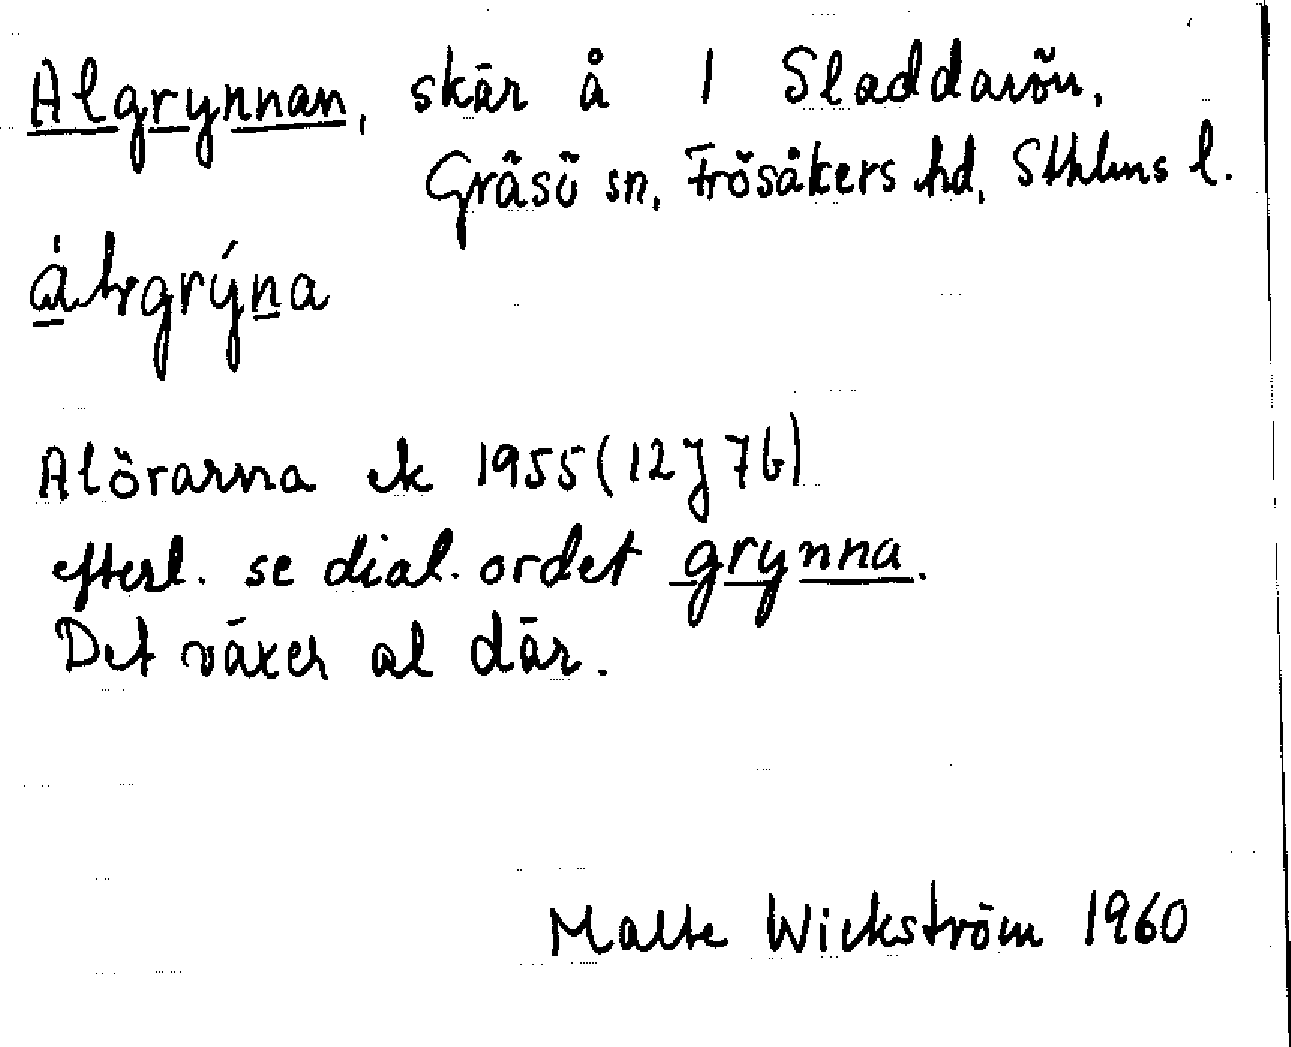 Algrynnan, skär å 1 Sladdarön,
Gräsö sn, Frösåkers hd, Sthlms l.
Alörarna ek 1955 (12J 7b)
efterl. se dial. ordet grynna.
Det växer al där.
Malte Wickström 1960